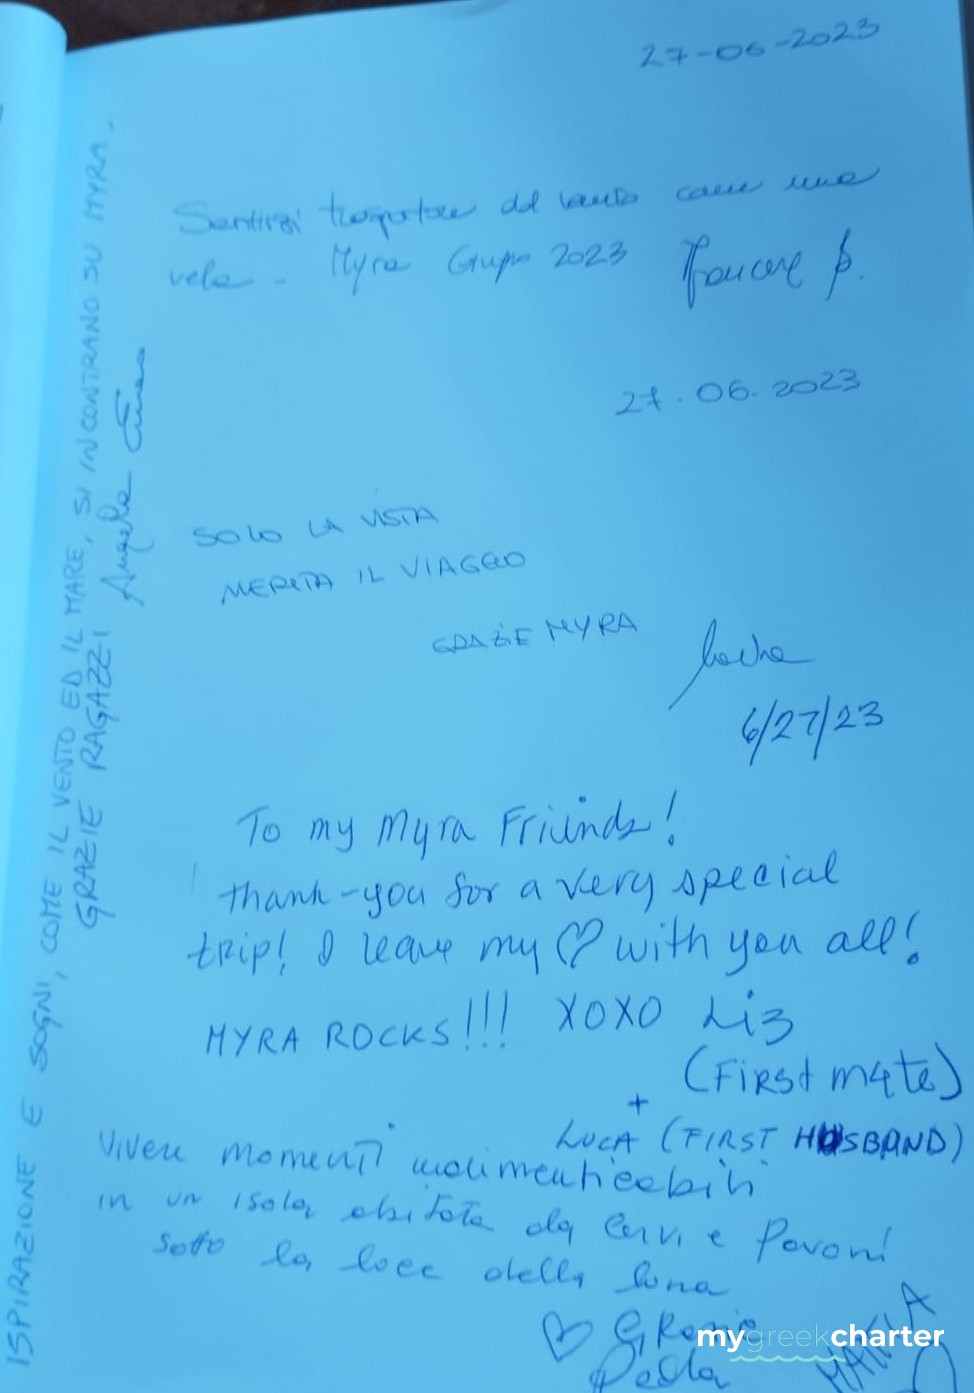 27-06-2023
Sentirsi trasportare dal vento come una
vela - Myra Grupo 2023
27.06.2023
SOLO LA VISTA
MERITA IL VIAGGIO
GRAZIE MYRA
6/27/23
To my Myra Friends!
thank-you for a very special
trip! I leave my ♡ with you all!
MYRA ROCKS!!! XOXO Liz
(First mate)
+
LUCA (FIRST HUSBAND)
Vivere momenti indimenticabili
in un isola abitata da Cervi e Pavoni
sotto la luce della luna
♡
Paola
ISPIRAZIONE E SOGNI, COME IL VENTO ED IL MARE, SI INCONTRANO SU MYRA.
GRAZIE RAGAZZI Angela
mygreekcharter